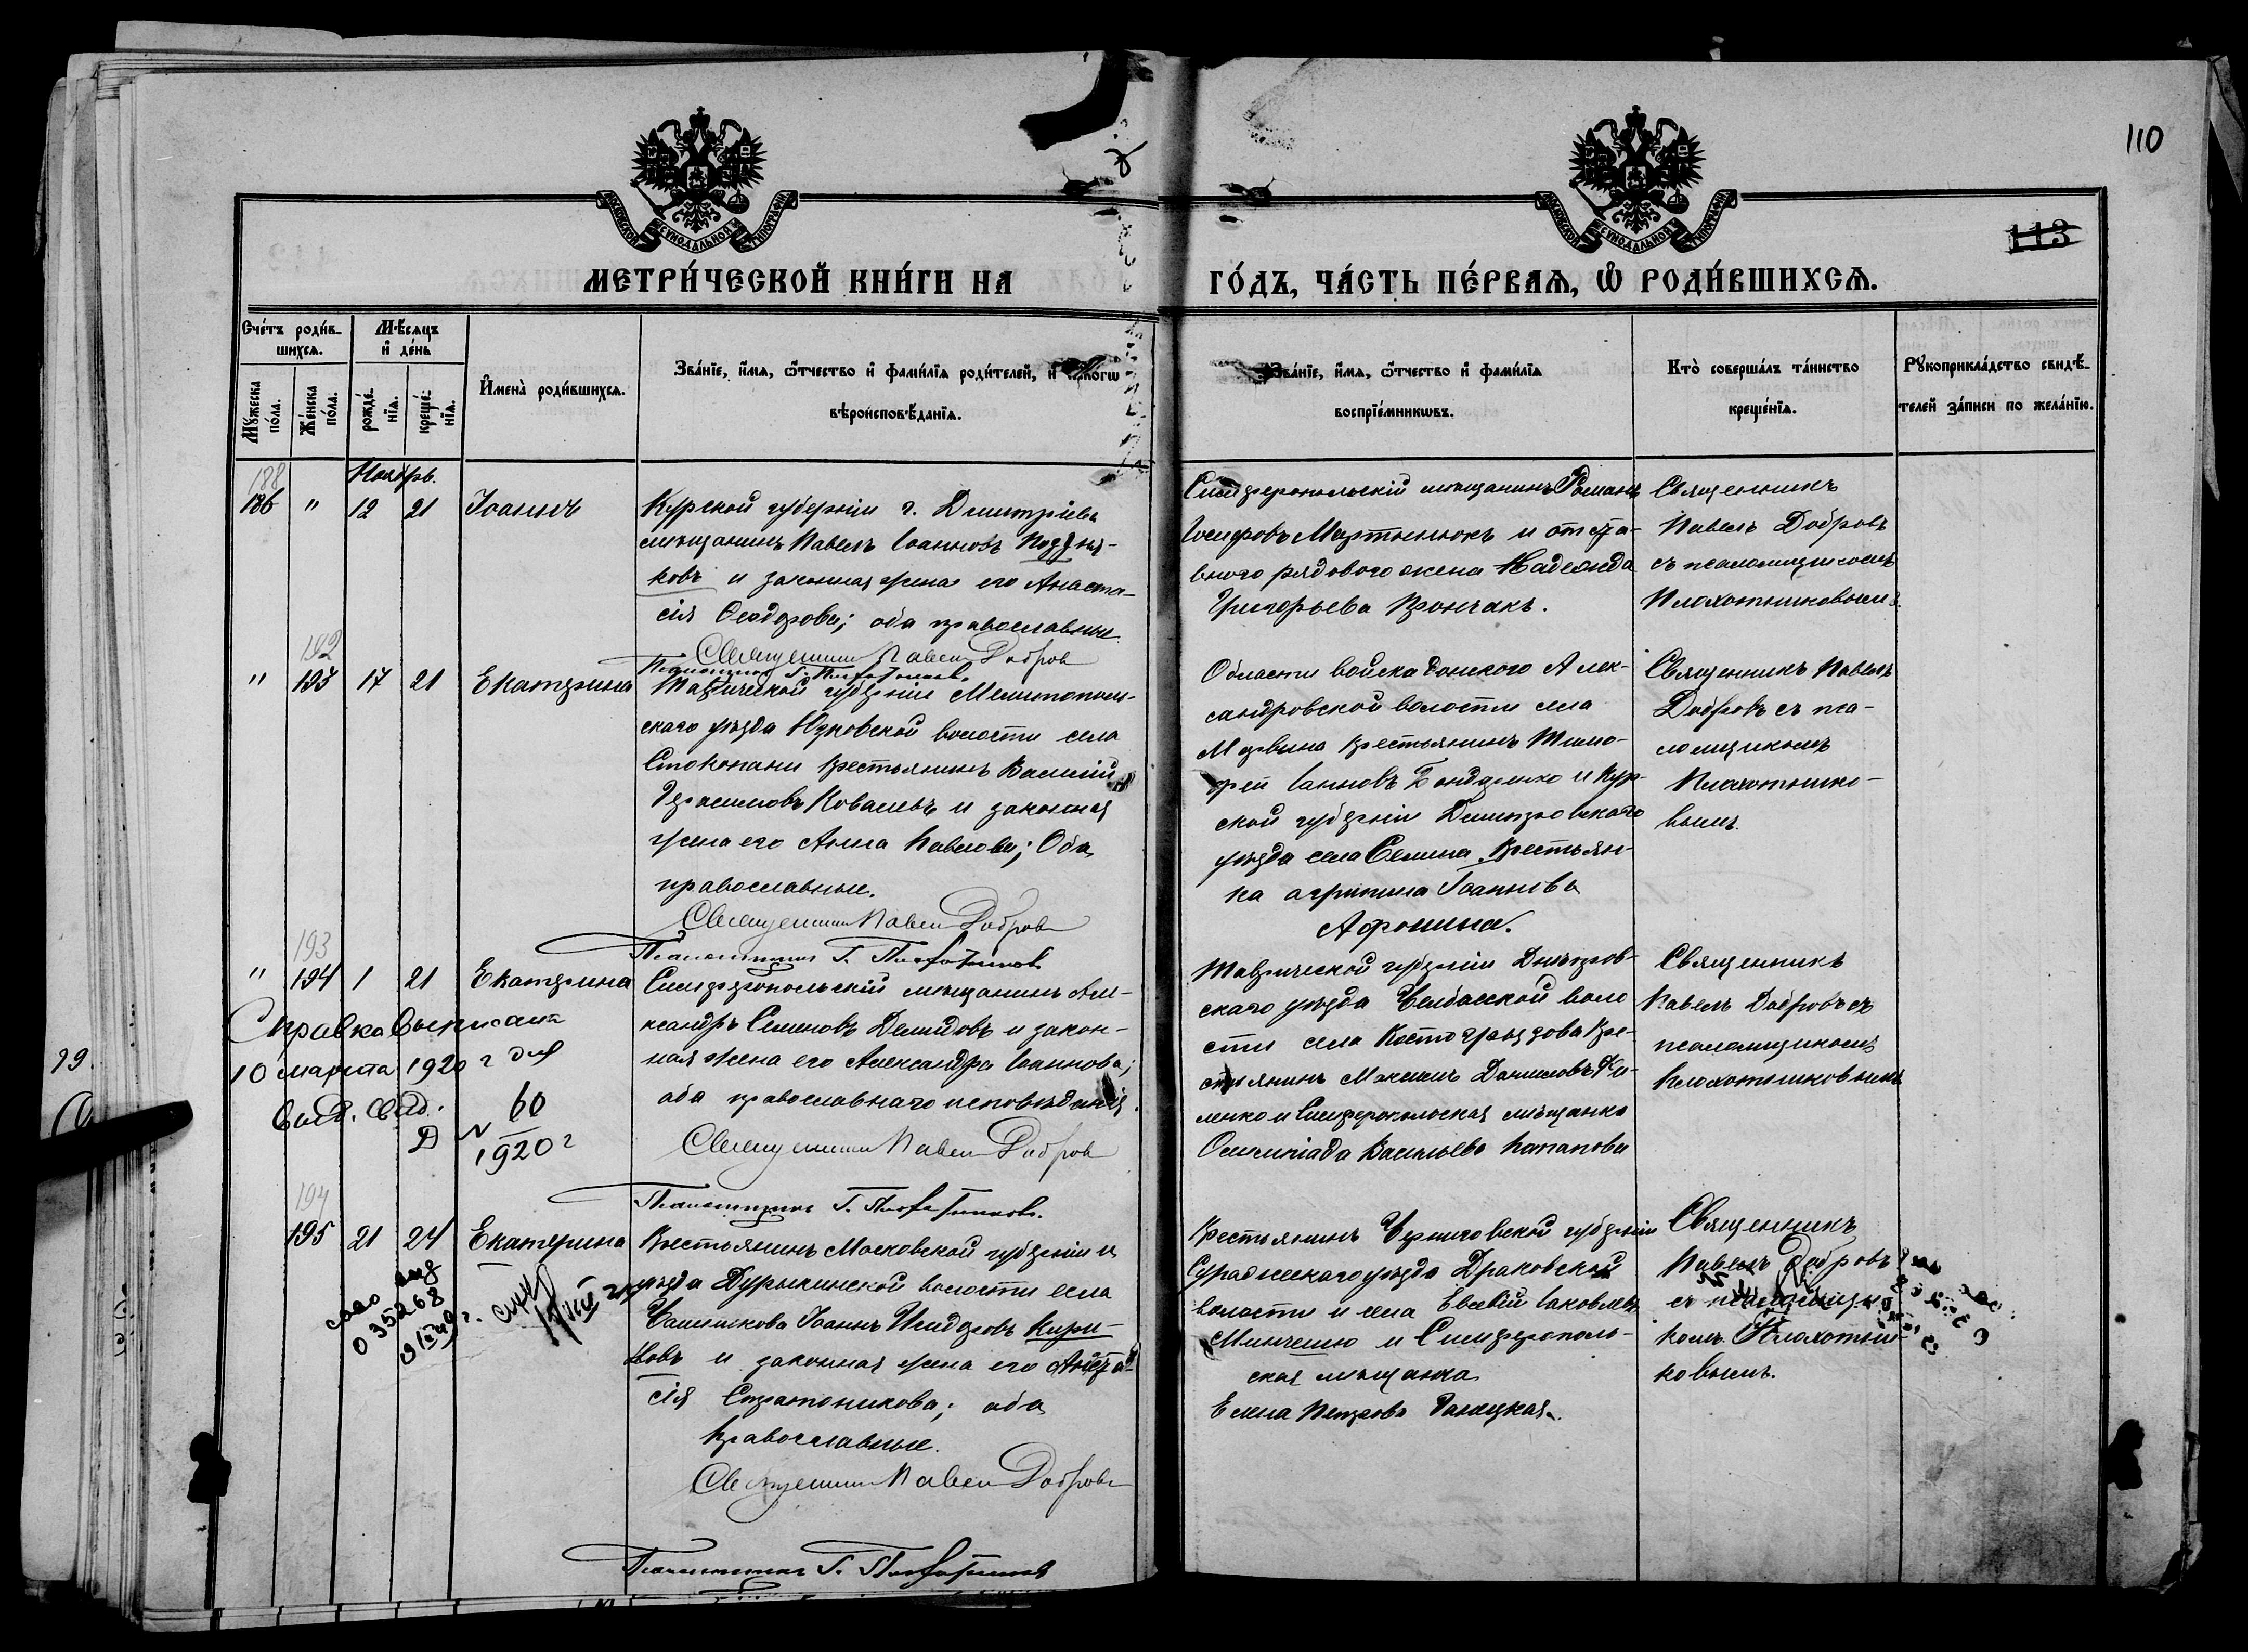 110
113
МОСКОВСКОЙ СѴНОДАЛЬНОЙ ТИПОГРАФІИ
МОСКОВСКОЙ СѴНОДАЛЬНОЙ ТИПОГРАФІИ
МЕТРИ́ЧЕСКОЙ КНИ́ГИ НА ГО́ДЪ, ЧА́СТЬ ПЕ́РВАѦ, Ѡ҆ РОДИ́ВШИХСѦ.
Сче́тъ роди́в-
шихсѧ.
Мѣ́сѧцъ
и҆ де́нь
Мꙋ́жеска
по́ла.
Же́нска
по́ла.
рожде́-
нїѧ.
креще́-
нїѧ.
И҆мена̀ роди́вшихсѧ.
Зва́нїе, и҆́мѧ, ѻ҆́тчество и҆ фами́лїѧ роди́телей, и҆
вѣроисповѣ́данїѧ.
Зва́нїе, и҆́мѧ, ѻ҆́тчество и҆ фами́лїѧ
воспрїе́мникѡвъ.
Кто̀ соверша́лъ та́инство
креще́нїѧ.
Рꙋкоприкла́дство свидѣ́-
телей за́писи по жела́нїю.
188
Ноябрь.
186 " 12 21 Іоаннъ
Курской губерніи г. Дмитріева
мѣщанинъ Павелъ Іоанновъ Поздня-
ковъ и законная жена его Анаста-
сія Ѳеодорова; оба православные.
Священникъ Павелъ Добровъ
Псаломщикъ Г. Плохотниковъ
Симферопольскій мѣщанинъ Романъ
Іосифовъ Мартынюкъ и отста-
вного рядового жена Надежда
Григорьева Крончакъ.
Священникъ
Павелъ Добровъ
съ псаломщикомъ
Плохотниковымъ.
192
" 193 17 21 Екатерина
Таврической губерніи Мелитополь-
скаго уѣзда Юзковской волости села
Стокопани крестьянинъ Василій
Герасимовъ Ковалевъ и законная
жена его Анна Павлова; Оба
православные.
Священникъ Павелъ Добровъ
Псаломщикъ Г. Плохотниковъ
Области войска Донского Алек-
сандровской волости села
крестьянинъ Тимо-
фей Іанновъ Бондаренко и Кур-
ской губерніи Дмитровскаго
уѣзда села Селина крестьян-
ка агрипина Іоаннова
Афонина.
Священникъ Павелъ
Добровъ съ пса-
ломщикомъ
Плохотнико-
вымъ.
193
" 194 1 21 Екатерина
Симферопольскій мѣщанинъ Але-
ксандръ Семеновъ Демидовъ и закон-
ная жена его Александра Іоаннова;
оба православнаго исповѣданія.
Священникъ Павелъ Добровъ
Псаломщикъ Г. Плохотниковъ.
Справка выписана
10 марта 1920 г для
выд. свид.
№ 60
1920 г
Таврической губерніи Днѣпров-
скаго уѣзда Чалбасской воло
сти села Костогрызова кре-
стьянинъ Максимъ Даниловъ Ки-
ленко и Симферопольская мѣщанка
Олимпіада Васильева Потапова
Священникъ
Павелъ Добровъ съ
псаломщикомъ
Плохотниковымъ
194
195 21 24 Екатерина
Крестьянинъ Московской губерніи и
уѣзда Дурыкинской волости села
Чашникова Іоаннъ Исидоровъ Кири-
ловъ и законная жена его Анста-
сія Стратоникова; оба
Православные.
Священникъ Павелъ Добровъ
Псаломщикъ Г. Плохотниковъ
035268
Крестьянинъ Черниговской губерніи
Суражскаго уѣзда Драковской
волости и села Евсевій Іаковлевъ
Минченко и Симферополь-
ская мѣщанка
Елена Петрова Галицкая.
Священникъ
Павелъ Добровъ
съ псаломщи-
комъ Плохотни-
ковымъ.